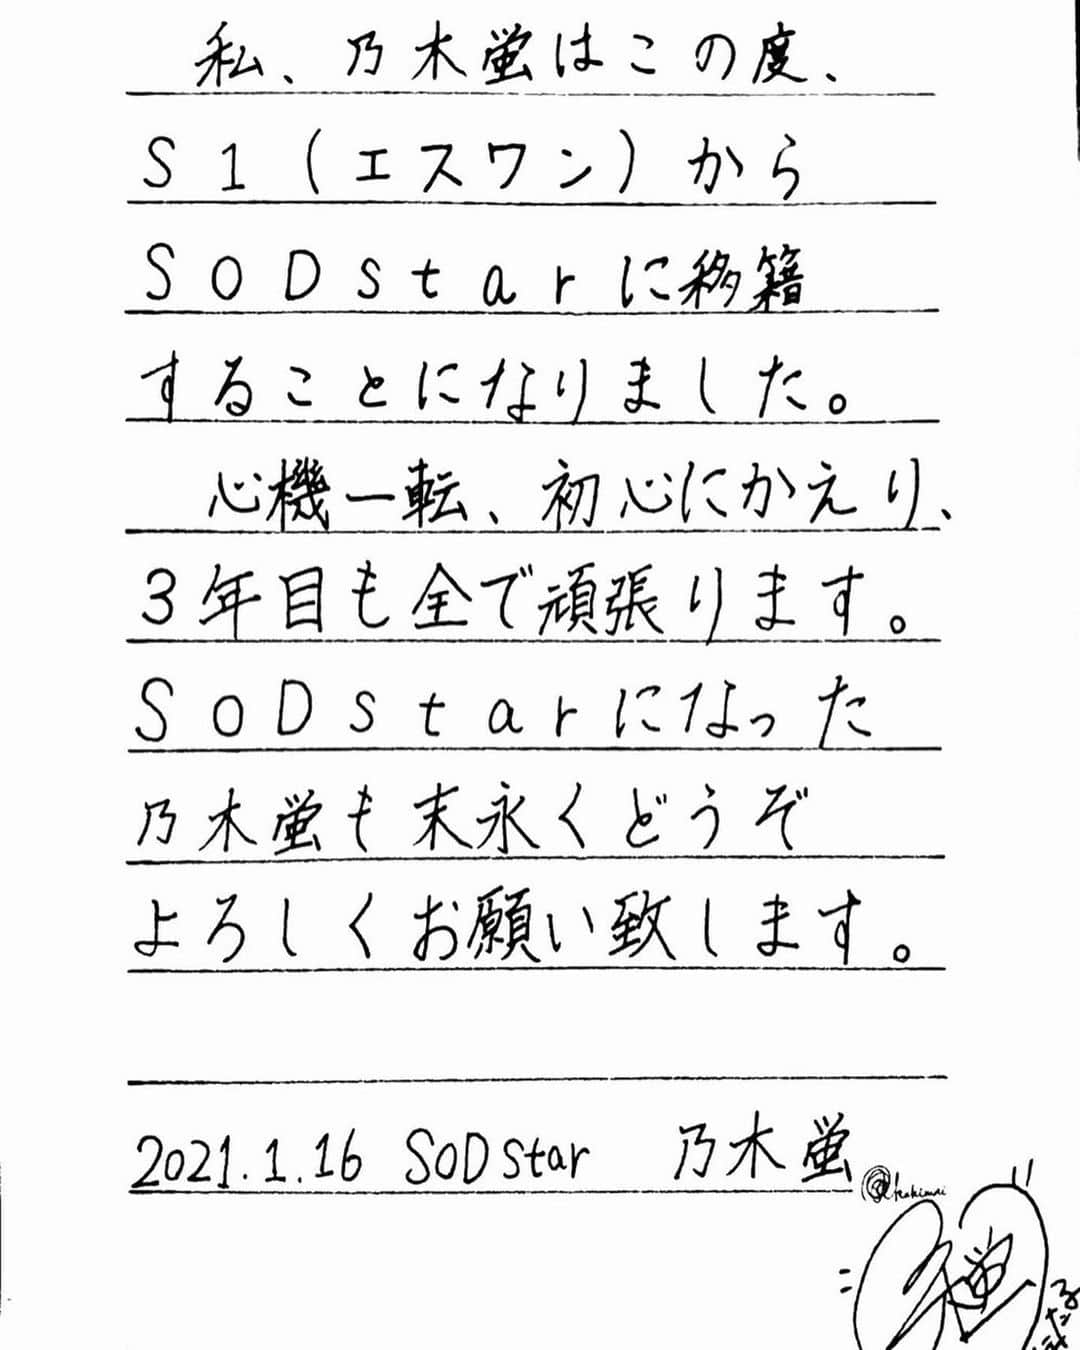 私、乃木蛍はこの度、
S1(エスワン)から
SODstarに移籍
することになりました。
心機一転、初心にかえり、
3年目も全で頑張ります。
SODstarになった
乃木蛍も末永くどうぞ
よろしくお願い致します。
2021.1.16 SODstar 乃木蛍